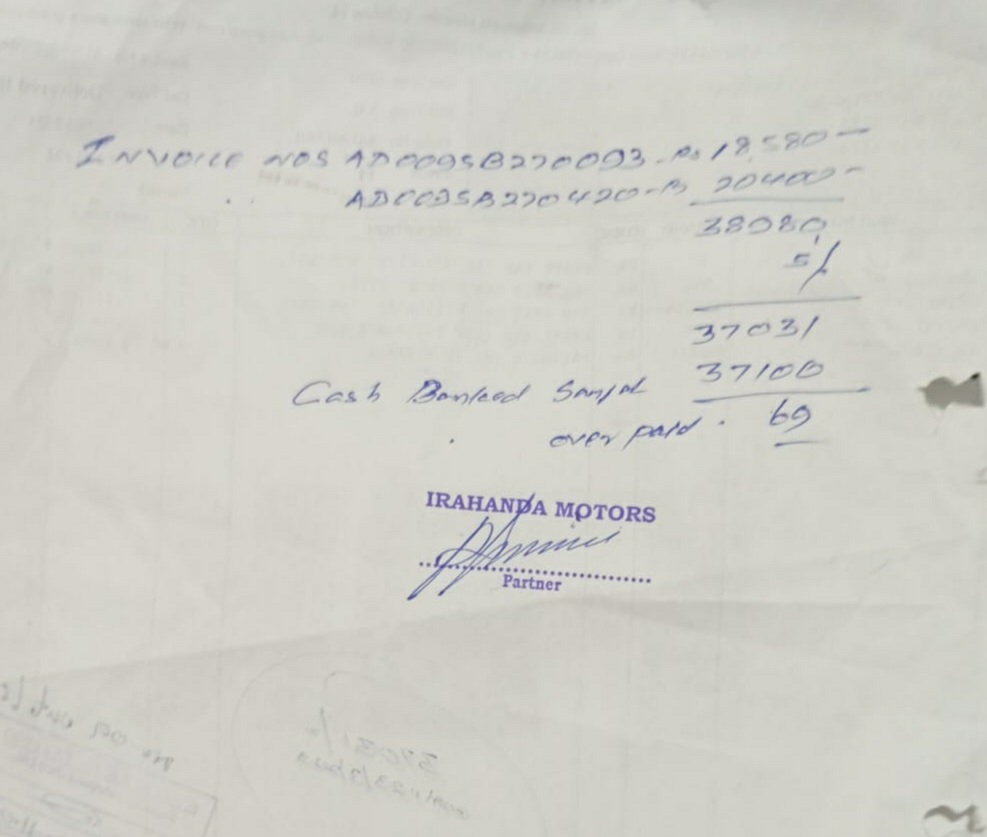 INVOICE NOS AD009SB270093 - Rs 18,580 -
AD009SB270420 - Rs 20400 -
38980
5%
37031
Cash Banked 37100
over paid . 69
IRAHANDA MOTORS
Partner
37031/-